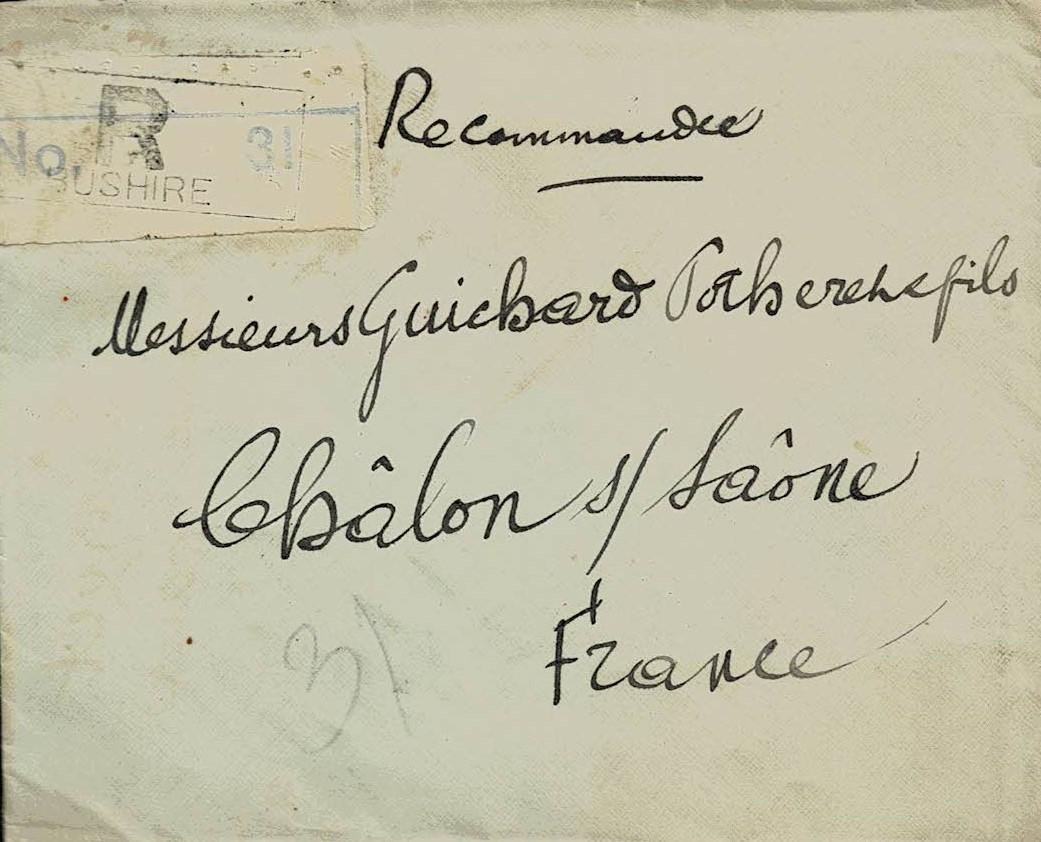 R
No. 31
BUSHIRE
Recommandée
Messieurs Guichard Potheret & fils
Châlon s/ Saône
France
31